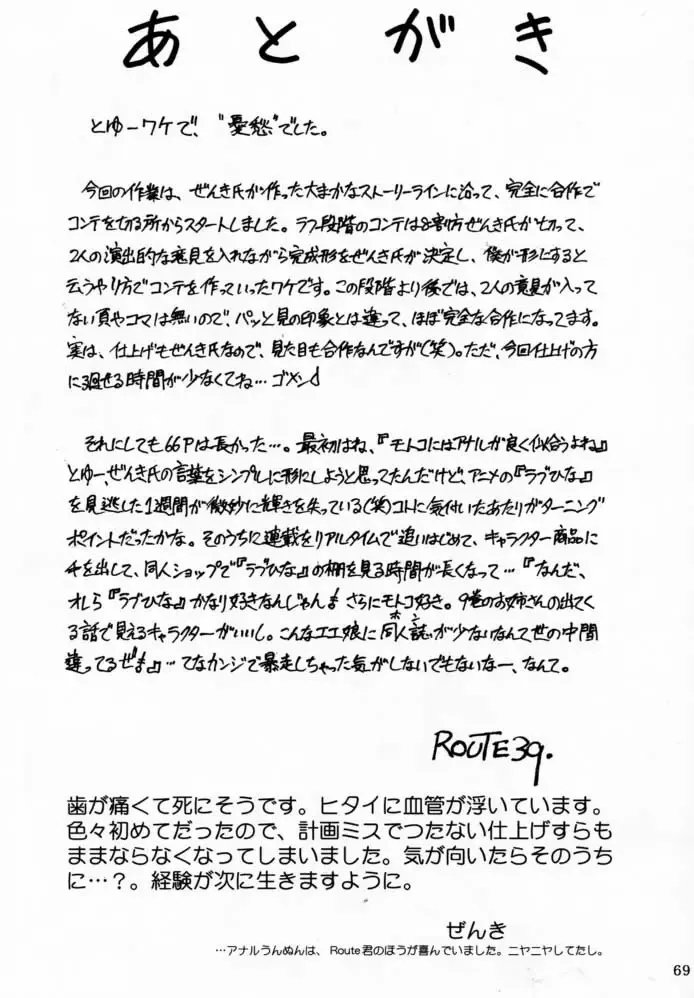 あとがき
とゆーワケで、“憂愁”でした。
今回の作業は、ぜんき氏が作った大まかなストーリーラインに沿って、完全に合作で
コンテを切る所からスタートしました。ラフ段階のコンテは8割方ぜんき氏が切って、
2人の演出的な意見を入れながら完成形をぜんき氏が決定し、僕が形にすると
云うやり方でコンテを作っていったワケです。この段階より後では、2人の意見が入って
ない頁やコマは無いので、パッと見の印象とは違って、ほぼ完全な合作になってます。
実は、仕上げもぜんき氏なので、見た目も合作なんですが(笑)。ただ、今回仕上げの方
に廻せる時間が少なくてね…ゴメン♪
それにしても66Pは長かった…。最初はね、『モトコにはアナルが良く似合うよね』
とゆー、ぜんき氏の言葉をシンプルに形にしようと思ってたんだけど、アニメの『ラブひな』
を見逃した1週間が微妙に輝きを失っている(笑)コトに気付いたあたりがターニング
ポイントだったかな。そのうちに連載をリアルタイムで追いはじめて、キャラクター商品に
手を出して、同人ショップで『ラブひな』の棚を見る時間が長くなって…『なんだ、
オレら『ラブひな』かなり好きなんじゃん。さらにモトコ好き。9巻のお姉さんの出てく
る話で見えるキャラクターがいいし。こんなエエ娘に同人誌が少ないなんて世の中間
ホン
違ってるぜ』…てなカンジで暴走しちゃった気がしないでもないなー、なんて。
ROUTE39.
歯が痛くて死にそうです。ヒタイに血管が浮いています。
色々初めてだったので、計画ミスでつたない仕上げすらも
ままならなくなってしまいました。気が向いたらそのうち
に…?。経験が次に生きますように。
ぜんき
…アナルうんぬんは、Route君のほうが喜んでいました。ニヤニヤしてたし。
69